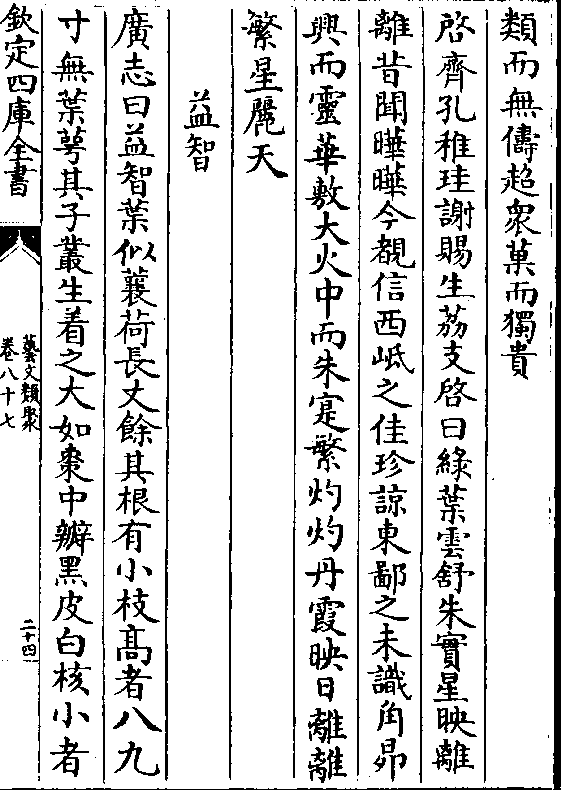 類而無儔超衆菓而獨貴
啓齊孔稚珪謝賜生荔支啓曰綠葉雲舒朱實星映離
離昔聞曄曄今覩信西岻之佳珍諒東鄙之未識角昴
興而靈華敷大火中而朱寔繁灼灼丹霞映日離離
繁星麗天
益智
廣志曰益智葉似蘘荷長丈餘其根有小枝髙者八九
寸無葉萼其子叢生着之大如棗中瓣黑皮白核小者
欽定四庫全書
藝文類聚
卷八十七
二十四